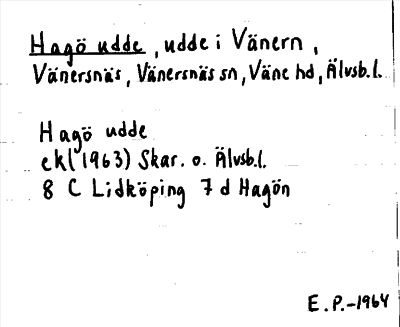 Hagö udde, udde i Vänern,
Vänersnäs, Vänersnäs sn, Väne hd, Älvsb.l.
Hagö udde
ekl(1963) Skar. o. Älvsb.l.
8 C Lidköping 7 d Hagön
E.P.-1964